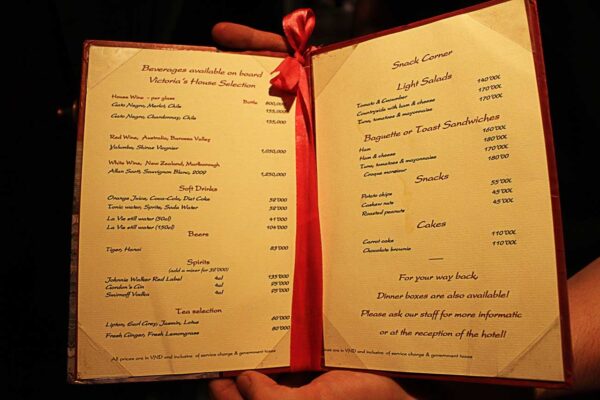 Beverages available on board
Victoria's House Selection
House Wine - per glass
Bottle 800,000
Gato Negro, Merlot, Chile 155,000
Gato Negro, Chardonnay, Chile 155,000
Red Wine, Australia, Barossa Valley
Yalumba, Shiraz Viognier 1,050,000
White Wine, New Zealand, Marlborough
Allan Scott, Sauvignon Blanc, 2009 1,250,000
Soft Drinks
Orange Juice, Coca-Cola, Diet Coke 52'000
Tonic water, Sprite, Soda Water 52'000
La Vie still water (50cl) 41'000
La Vie still water (150cl) 104'000
Beers
Tiger, Hanoi 83'000
Spirits
(add a mixer for 32'000)
Johnnie Walker Red Label 4cl 135'000
Gordon's Gin 4cl 95'000
Smirnoff Vodka 4cl 95'000
Tea selection
Lipton, Earl Grey, Jasmin, Lotus 60'000
Fresh Ginger, Fresh Lemongrass 80'000
All prices are in VND and inclusive of service charge & government taxes
Snack Corner
Light Salads
Tomato & Cucumber 140'000
Countryside with ham & cheese 170'000
Tuna, tomatoes & mayonnaise 170'000
Baguette or Toast Sandwiches
Ham 160'000
Ham & cheese 180'000
Tuna, tomatoes & mayonnaise 170'000
Croque monsieur 180'00
Snacks
Potato chips 55'000
Cashew nuts 45'000
Roasted peanuts 45'000
Cakes
Carrot cake 110'000
Chocolate brownie 110'000
For your way back,
Dinner boxes are also available!
Please ask our staff for more informatic
or at the reception of the hotel!
ces are in VND and inclusive of service charge & government taxes